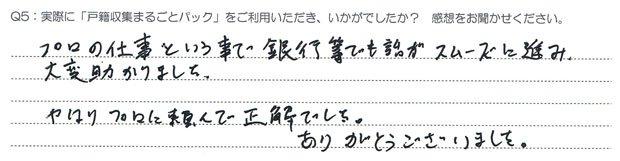 Q5：実際に「戸籍収集まるごとパック」をご利用いただき、いかがでしたか？ 感想をお聞かせください。
プロの仕事という事で銀行等でも話がスムーズに進み、
大変助かりました。
やはりプロに頼んで正解でした。
ありがとうございました。